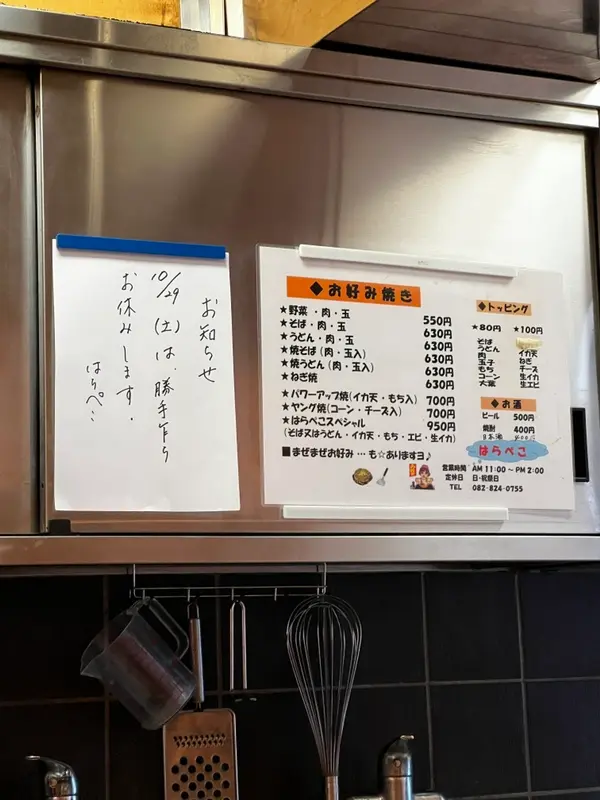 お知らせ
10/29(土)は、勝手乍ら
お休みします。
はらぺこ
◆お好み焼き
★野菜・肉・玉 550円
★そば・肉・玉 630円
★うどん・肉・玉 630円
★焼そば(肉・玉入) 630円
★焼うどん(肉・玉入) 630円
★ねぎ焼 630円
★パワーアップ焼(イカ天・もち入) 700円
★ヤング焼(コーン・チーズ入) 700円
★はらぺこスペシャル 950円
(そば又はうどん・イカ天・もち・エビ・生イカ)
■まぜまぜお好み…も☆ありますヨ♪
◆トッピング
★80円 ★100円
そば
うどん イカ天
肉 ねぎ
玉子 チーズ
もち 生イカ
コーン 生エビ
大葉
◆お酒
ビール 500円
焼酎 400円
日本酒
はらぺこ
営業時間 AM 11:00～PM 2:00
定休日 日・祝祭日
TEL 082-824-0755